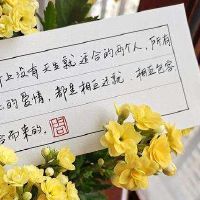 上没有天生就适合的两个人，所有
的爱情，都是相互迁就、相互包容
而来的。